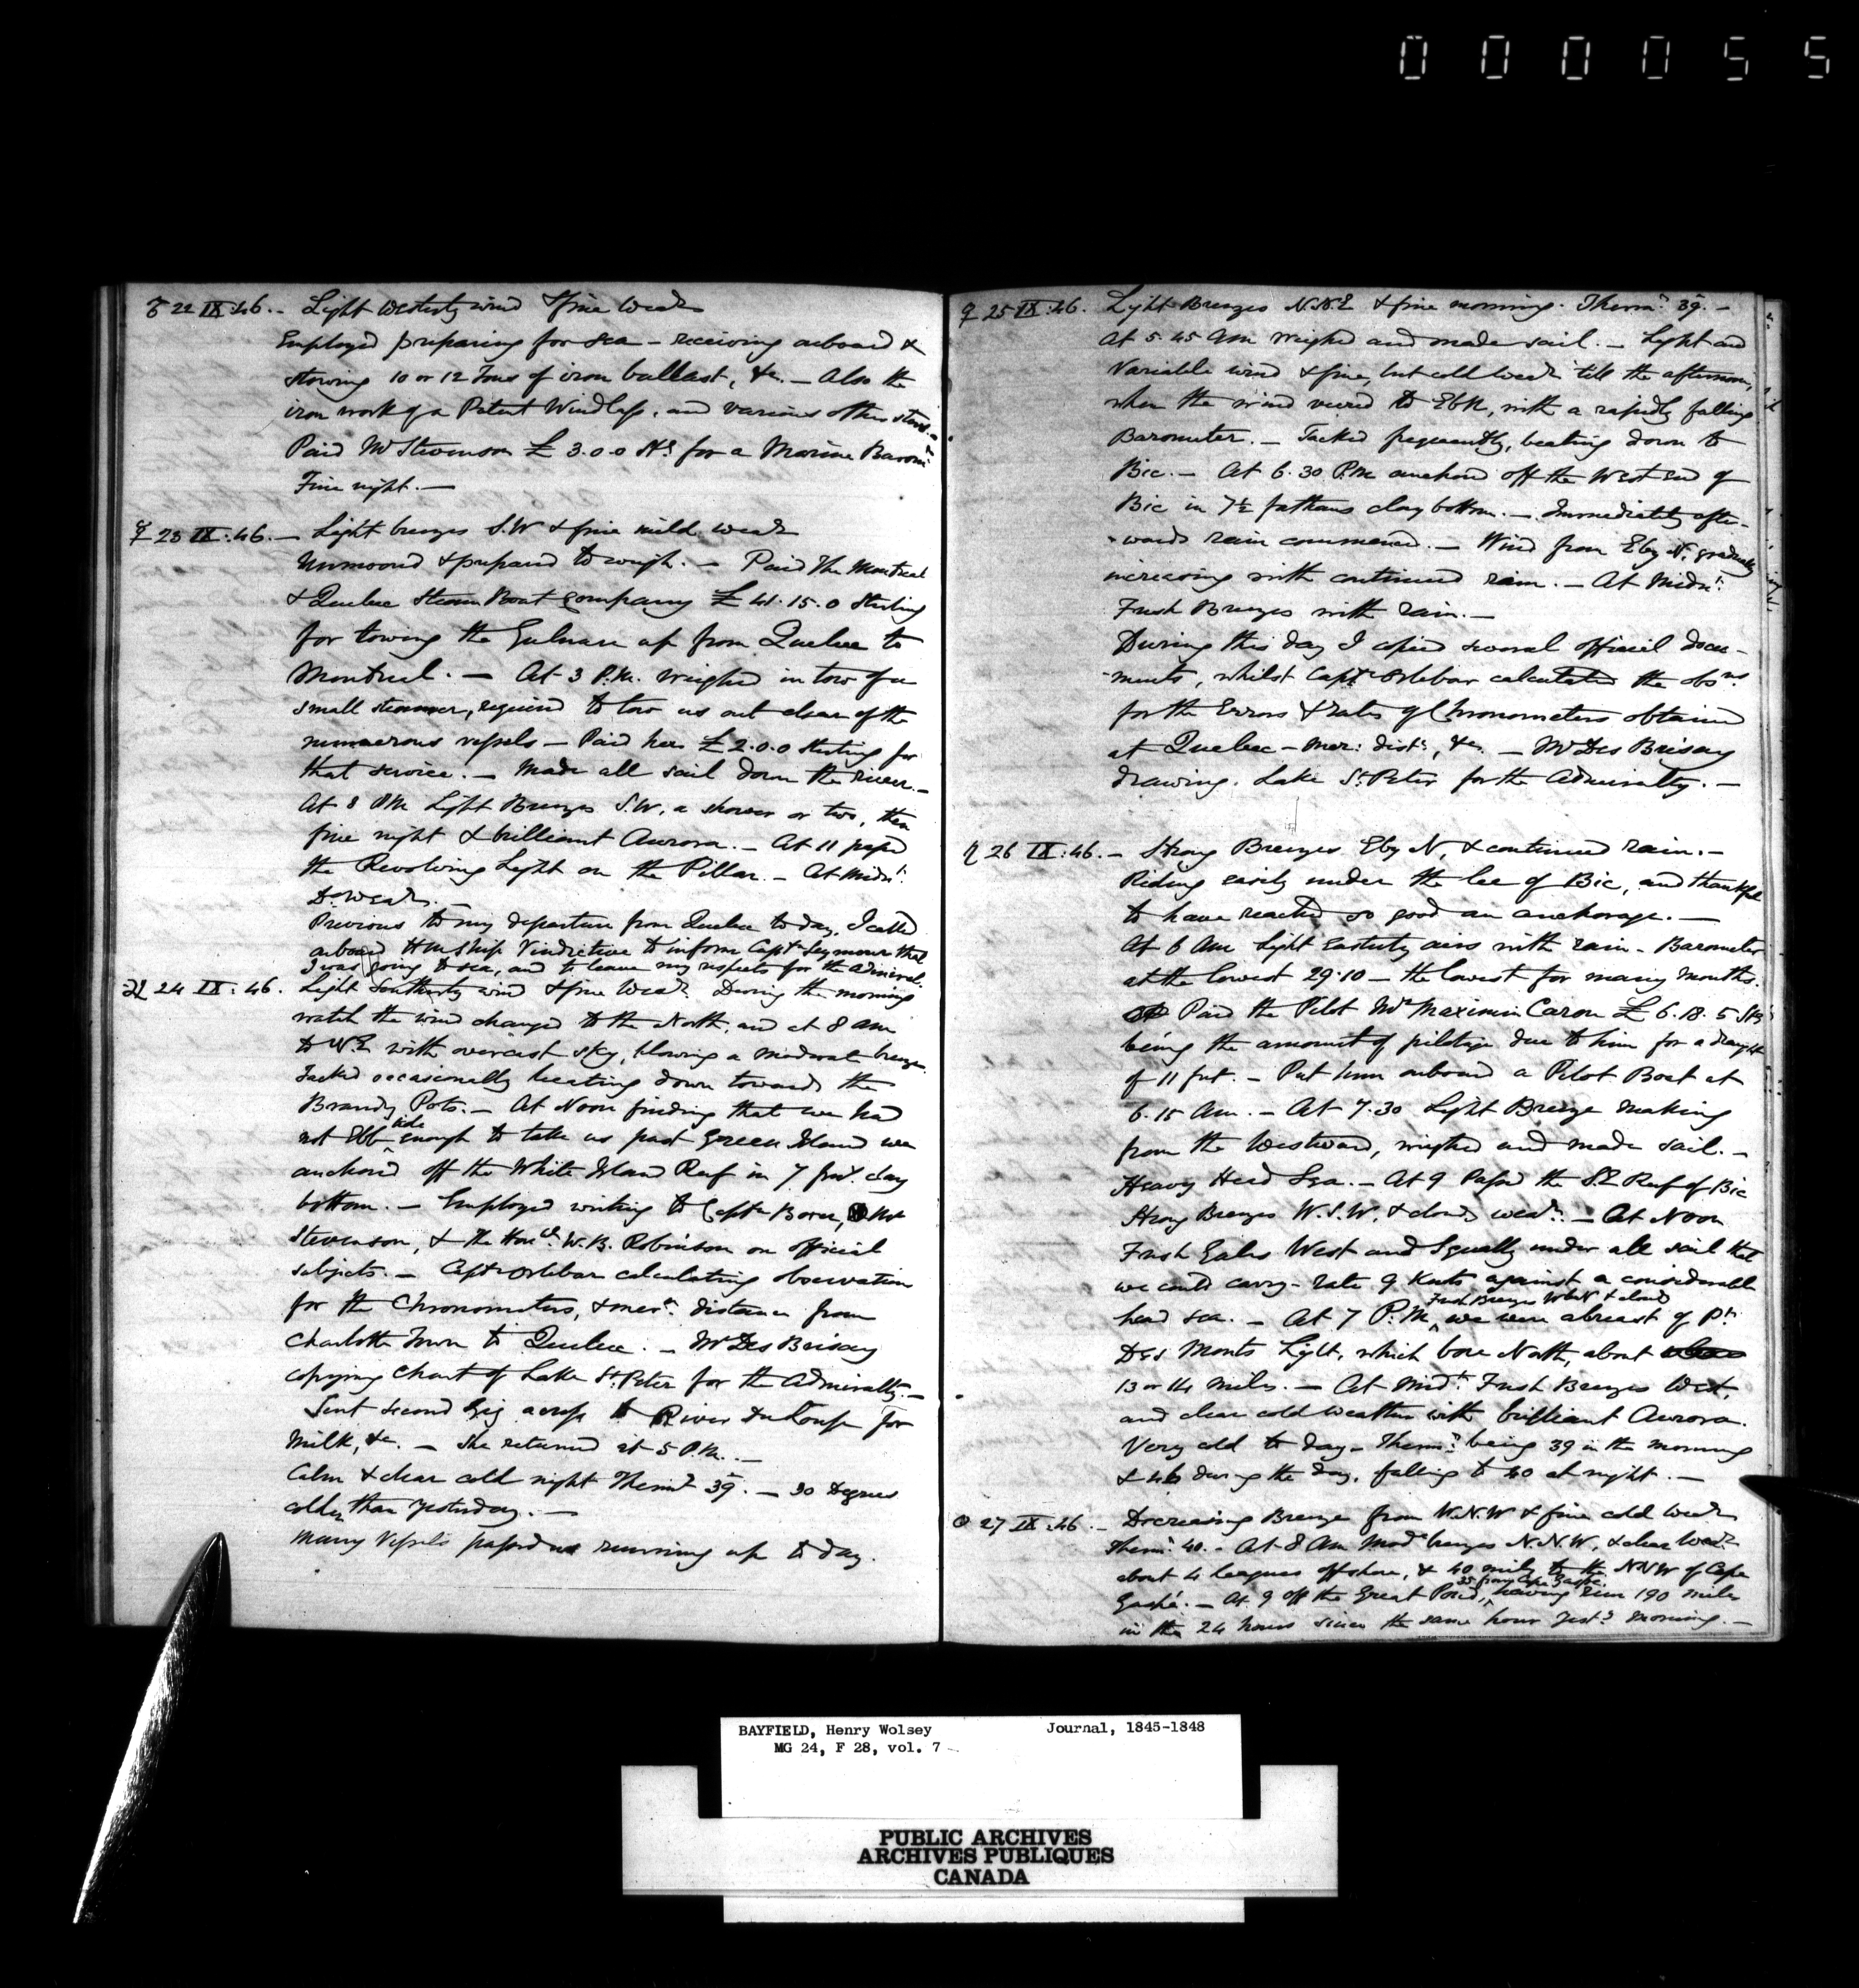 000055
♂ 22 IX:46. - Light Westerly wind & fine Weathr
Employed preparing for sea - receiving onboard &
stowing 10 or 12 Tons of iron ballast, &c. - Also the
iron work of a Patent Windlass, and various other stores. -
Paid Mr Stevenson £ 3.0.0 for a Marine Baromr
Fine night. -
☿ 23 IX:46. - Light breezes S.W & fine mild weathr
Unmoored & prepared to weigh. - Paid the Montreal
& Quebec Steam Boat Company £ 41.15.0 Sterling
for towing the Gulnare up from Quebec to
Montreal. - At 3 P.M. weighed in tow of a
small steamer, required to tow us out clear of the
numerous vessels - Paid her £ 2.0.0 sterling for
that service. - Made all sail down the river. -
At 8 PM Light Breezes S.W, a shower or two, then
fine night & brilliant Aurora. - At 11 passed
the Revolving Light on the Pillar. - At Midnt.
Do Weathr. -
Previous to my departure from Quebec to day, I called
onboard HM Ship Vindictive to inform Captn Seymour that
I was going to sea, and to leave my respects for the Admiral.
♃ 24 IX:46. Light Southerly wind & fine Weathr. During the morning
watch the wind changed to the North, and at 8 am
to N.E with overcast sky, blowing a moderate breeze.
Tacked occasionally beating down towards the
Brandy Pots. - At Noon finding that we had
not Ebb tide enough to take us past Green Island we
anchored off the White Island Reef in 7 fms. clay
bottom. - Employed writing to Captn Boxer, Mr
Stevenson, & the Honble. W. B. Robinson on official
subjects. - Captn Orlebar calculating observations
for the Chronometers, & mern. distance from
Charlotte Town to Quebec. - Mr Des Brisay
copying Chart of Lake St. Peter for the Admiralty. -
Sent second Gig across to River du Loup for
Milk, &c. - She returned at 5 P.M. -
Calm & clear cold night Thermr 39°. - 30 Degrees
colder than yesterday. -
Many Vessels passed us running up to day.
♀ 25 IX:46. Light Breezes N.N.E & fine morning. Thermr. 39°. -
At 5.45 Am weighed and made sail. - Light and
Variable wind & fine, but cold Weathr till the afternoon,
when the wind veered to EbN, with a rapidly falling
Barometer. - Tacked frequently, beating down to
Bic. - At 6.30 P.M anchored off the West end of
Bic in 7½ fathoms clay bottom. - Immediately after-
-wards rain commenced. - Wind from E by N. gradually
increasing with continued rain. - At Midnt.
Fresh Breezes with rain. -
During this day I copied several official docu-
-ments, whilst Captn Orlebar calculated the obsns.
for the Errors & rates of Chronometers obtained
at Quebec - Mer: dists, &c. - Mr Des Brisay
drawing Lake St. Peter for the Admiralty. -
♄ 26 IX:46. - Strong Breezes E by N, & continued rain. -
Riding easily under the lee of Bic, and thankful
to have reached so good an anchorage. -
At 6 Am Light Easterly airs with rain - Barometer
at the lowest 29.10 - the lowest for many months.
Paid the Pilot Mr Maximin Caron £ 6.18.5 Stg
being the amount of pilotage due to him for a draught
of 11 feet. - Put him onboard a Pilot Boat at
6.15 Am. - At 7.30 Light Breeze making
from the Westward, weighed and made sail. -
Heavy Head Sea. - At 9 Passed the S.E Reef of Bic
Strong Breezes W.S.W, & cloudy weathr. - At Noon
Fresh Gales West and Squally under all sail that
we could carry - rate 9 Knots against a considerable
Fresh Breezes WbN & cloudy
head sea. - At 7 P.M, we were abreast of Pt.
Des Monts Light, which bore North, about
13 or 14 miles. - At Midt. Fresh Breezes West,
and clear cold weather with brilliant Aurora.
Very cold to day - Thermr. being 39 in the morning
& 46 during the day, falling to 40 at night. -
☉ 27 IX:46. - Decreasing Breeze from W.N.W & fine cold weathr
Thermr. 40. - At 8 Am Modte breezes N.N.W, & clear Weathr
about 4 leagues offshore, & 40 miles to the NNW of Cape
Gaspé. - At 9 off the Great Pond, 35 from Cape Gaspé. having run 190 miles
in the 24 hours since the same hour yesty. morning. -
BAYFIELD, Henry Wolsey Journal, 1845-1848
MG 24, F 28, vol. 7
PUBLIC ARCHIVES
ARCHIVES PUBLIQUES
CANADA